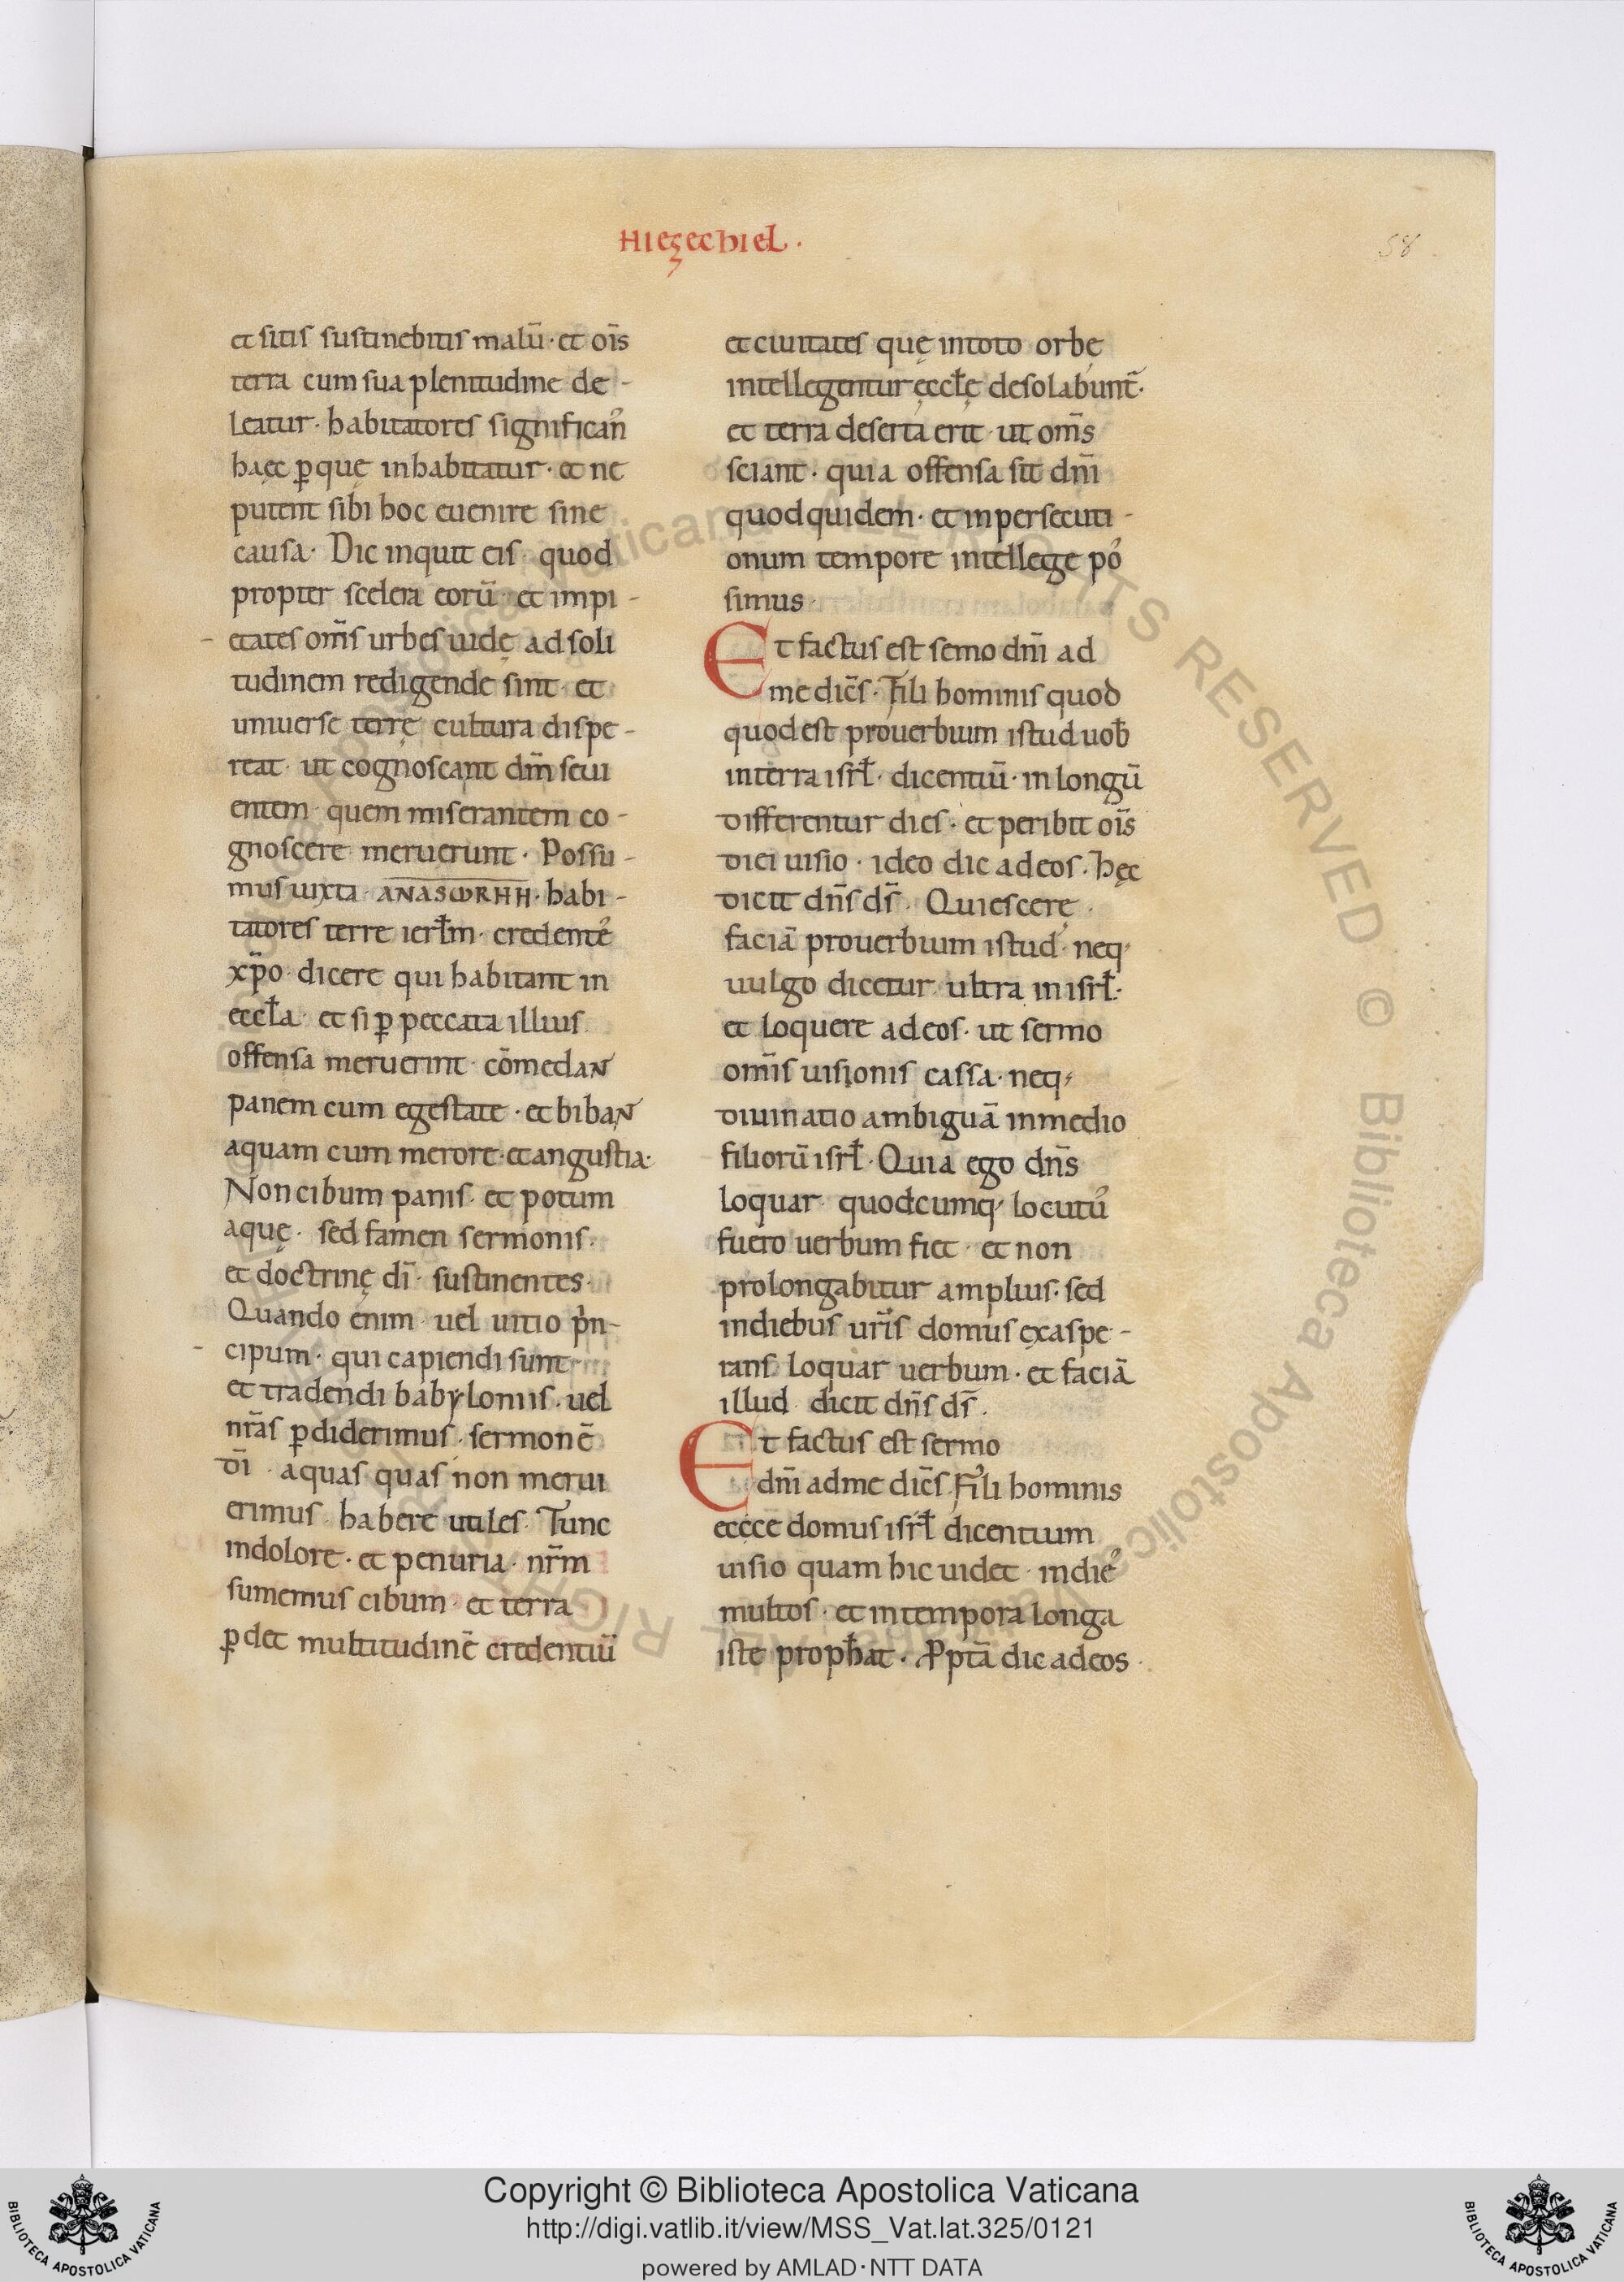 HIEZECHIEL ·
58
et sitis sustinebitis malū · et oīs
terra cum sua plenitudine de -
leatur · habitatores significan̉
haęc ꝑ quę inhabitatur · et ne
putent sibi hoc euenire sine
causa · Dic inquit eis · quod
propter scelera eorū · et impi -
etates om̄s urbes iudę ad soli
tudinem redigende sint · et
uniuerse terrę cultura dispe -
reat · ut cognoscant dn̄m seui
entem · quem miserantem co -
gnoscere meruerunt · Possu -
mus iuxta · ANASωRHH · habi -
tatores terre ierl̄m · credente᾽
xp̄o · dicere qui habitant in
eccl̄a · et si ꝑ peccata illius
offensa meruerint · cōmedaN
panem cum egestate · et bibaN
aquam cum merore · et angustia ·
Non cibum panis · et potum
aquę · sed famen sermonis ·
et doctrinę dī · sustinentes ·
Quando enim · uel uitio p̄n -
cipum · qui capiendi sunt
et tradendi babyloniis · uel
nr̄as ꝑdiderimus · sermonē
dī · aquas quas non merui
erimus · habere utiles · Tunc
indolore · et penuria · nr̄m
sumemus cibum · et terra
ꝑdet multitudinē credentiū
et ciuitates quę intoto orbe
intellegentur ęccl̄ę desolabunt̄ ·
et terra deserta erit · ut om̄s
sciant · quia offensa sit dn̄i
quod quidem · et in persecuti -
onum tempore intellege po᾽
simus ·
Et factus est semo dn̄i ad
me diēs · Fili hominis quod
quod est prouerbium istud uob̄
interra isrl̄ · dicentiū · in longū
differentur dies · et peribit oīs
diei uisio · ideo dic ad eos · hęc
dicit dn̄s ds̄ · Quiescere
faciā prouerbium istud · neq;
uulgo dicetur ultra in isrl̄ ·
et loquere ad eos · ut sermo
om̄is uisionis cassa · neq;
diuinatio ambiguā inmedio
filiorū isrl̄ · Quia ego dn̄s
loquar · quodcumq; locutu᾽
fuero uerbum fiet · et non
prolongabitur amplius · sed
indiebus ur̄is domus ęxaspe -
rans loquar uerbum · et faciā
illud · dicit dn̄s ds̄ ·
Et factus est sermo
dn̄i adme diēs · Fili hominis
ecęce domus isrl̄ dicentium
uisio quam hic uidet · indie᾽
multos · et intempora longa
iste proph̄at · Pptā dic ad eos ·
Copyright © Biblioteca Apostolica Vaticana
http://digi.vatlib.it/view/MSS_Vat.lat.325/0121
powered by AMLAD·NTT DATA